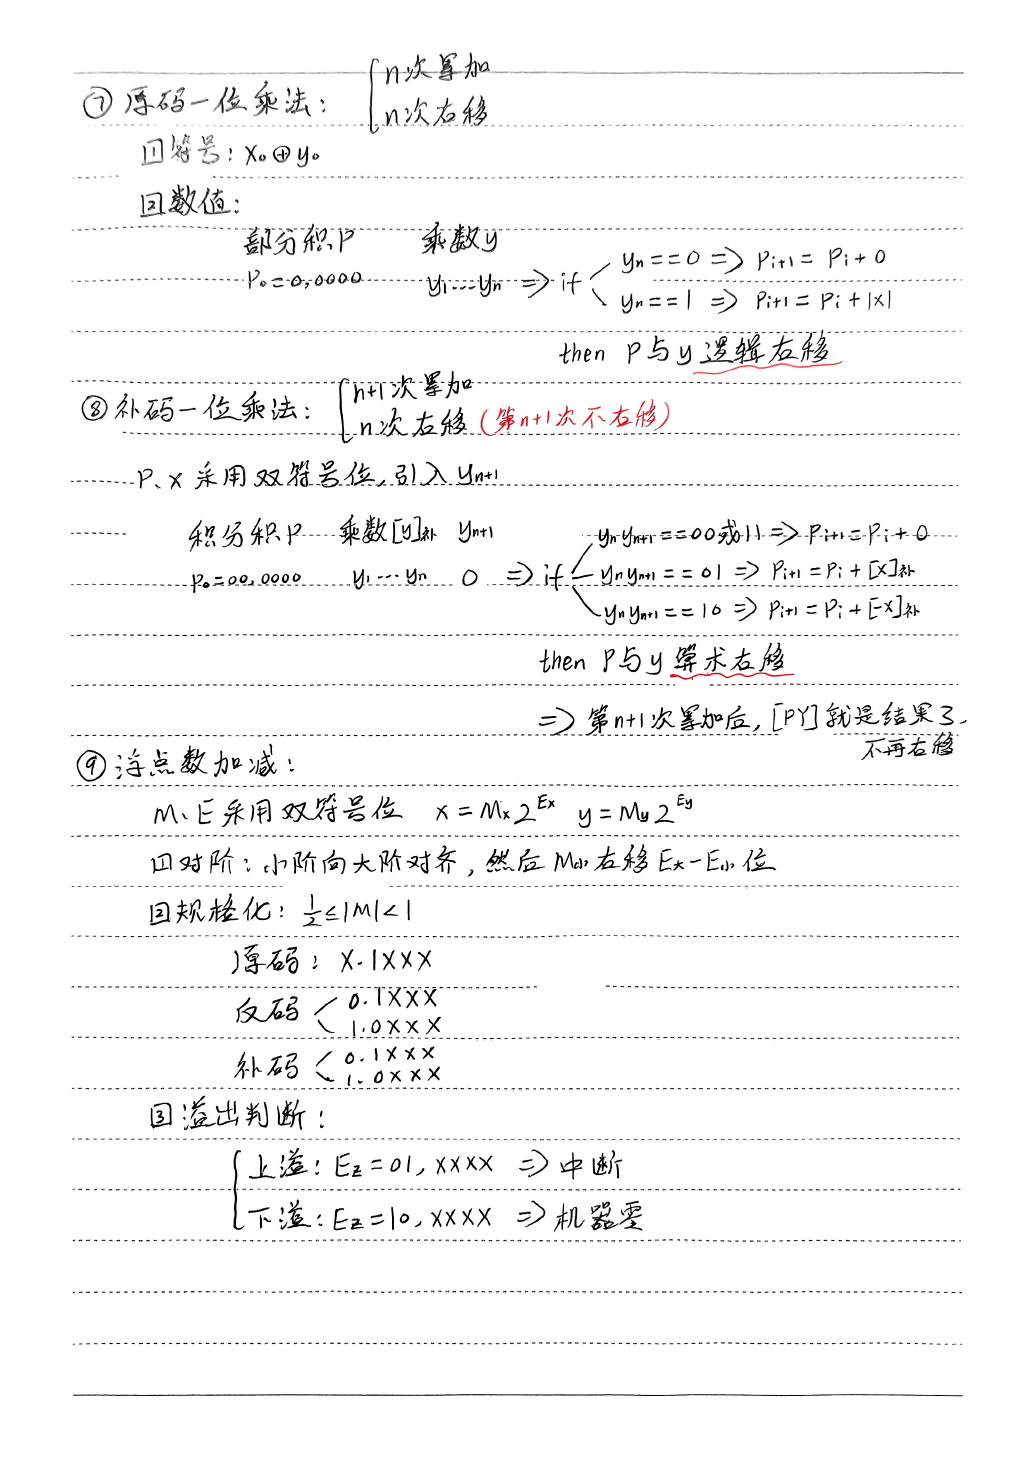 ⑦ 原码一位乘法: { n次累加
n次右移
[1]符号: x₀⊕y₀
[2]数值:
部分积P 乘数y
P₀=0,0000 y₁...yₙ => if yₙ==0 => Pᵢ₊₁ = Pᵢ+0
yₙ==1 => Pᵢ₊₁ = Pᵢ+|x|
then P与y 逻辑右移
⑧ 补码一位乘法: { n+1次累加
n次右移 (第n+1次不右移)
P、X 采用双符号位, 引入 yₙ₊₁
积分积P 乘数[y]补 yₙ₊₁ yₙyₙ₊₁==00或11 => Pᵢ₊₁=Pᵢ+0
P₀=00,0000 y₁...yₙ 0 => if yₙyₙ₊₁==01 => Pᵢ₊₁=Pᵢ+[X]补
yₙyₙ₊₁==10 => Pᵢ₊₁=Pᵢ+[-X]补
then P与y 算术右移
=> 第n+1次累加后, [PY]就是结果了,
不再右移
⑨ 浮点数加减:
M、E采用双符号位 x=Mₓ2^Ex y=My2^Ey
[1]对阶: 小阶向大阶对齐, 然后M小右移E大-E小位
[2]规格化: 1/2≤|M|<1
原码: X.1XXX
反码 0.1XXX
1.0XXX
补码 0.1XXX
1.0XXX
[3]溢出判断:
{ 上溢: Ez=01,XXXX => 中断
下溢: Ez=10,XXXX => 机器零